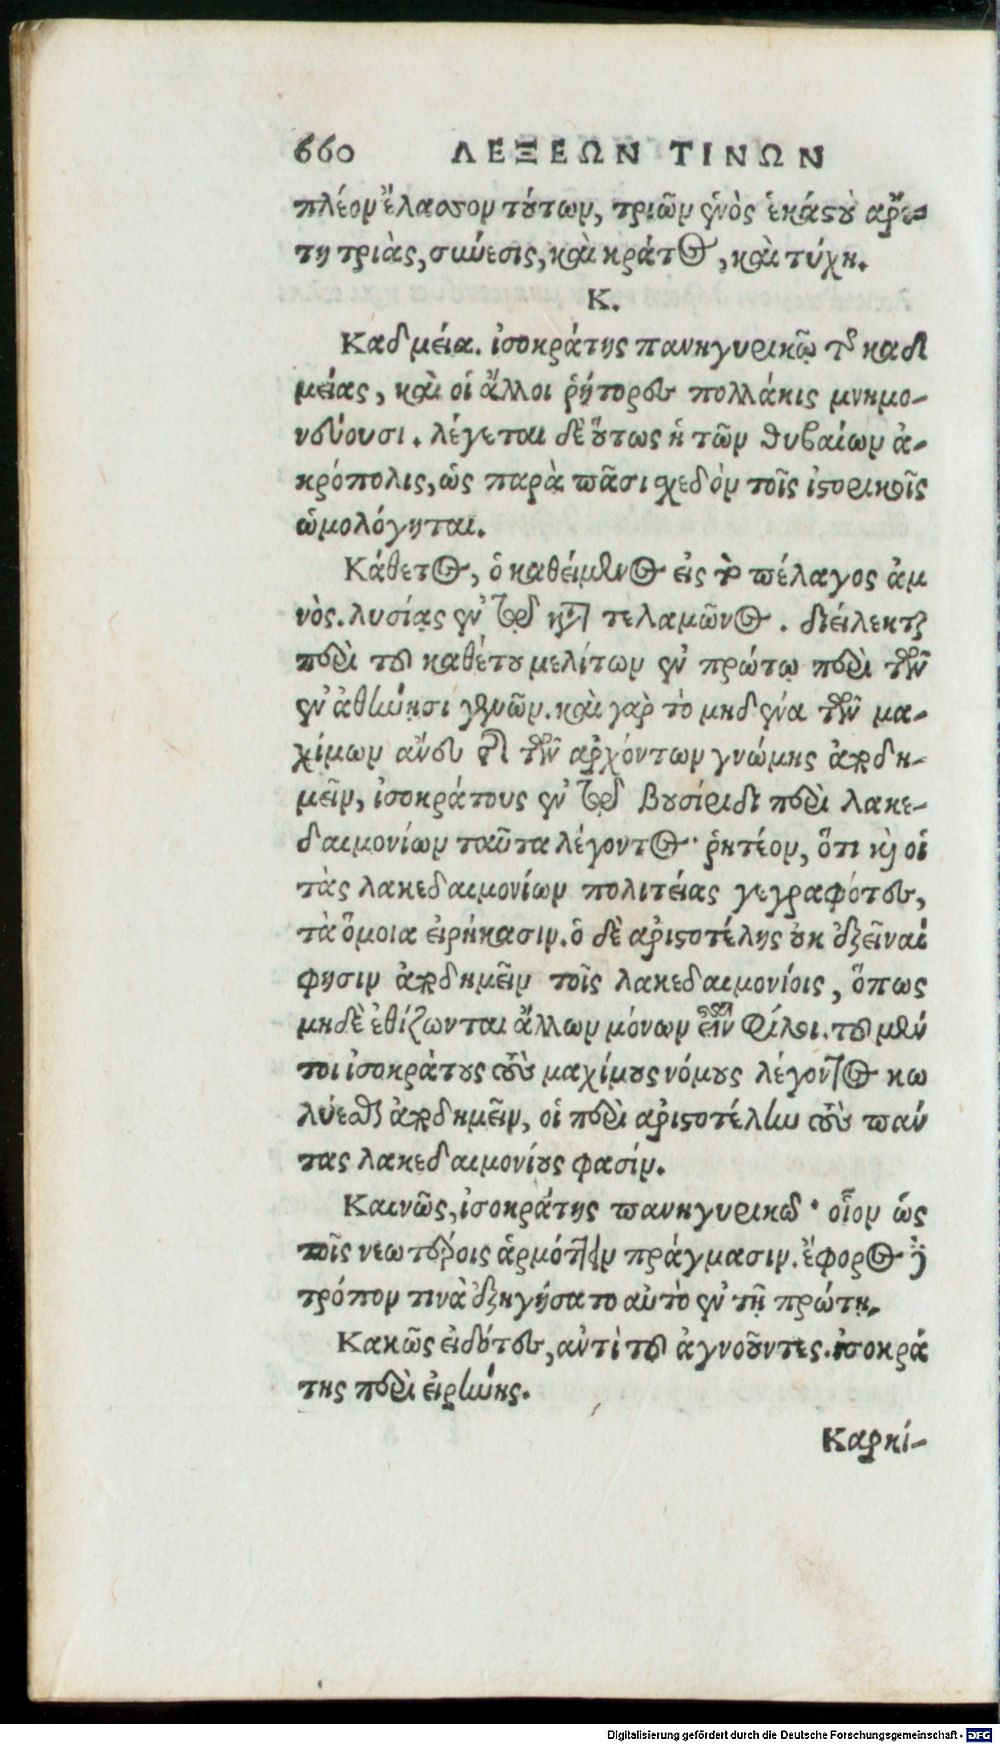 660 ΛΕΞΕΩΝ ΤΙΝΩΝ
πλέον ἔλασσον τούτων, τριῶν ἑνὸς ἑκάστου ἀρε-
τὴ τριὰς, σύνεσις, καὶ κράτος, καὶ τύχη.
Κ.
Καδμεία. ἰσοκράτης πανηγυρικῷ τῆς καδ
μείας, καὶ οἱ ἄλλοι ῥήτορες πολλάκις μνημο-
νεύουσι. λέγεται δὲ οὕτως ἡ τῶν θηβαίων ἀ-
κρόπολις, ὡς παρὰ πᾶσι σχεδὸν τοῖς ἱστορικοῖς
ὡμολόγηται.
Κάθετος, ὁ καθείμενος εἰς τὸ πέλαγος ἀμ
νὸς. λυσίας ἐν τῷ κατὰ τελαμῶνος. διείλεκται
περὶ τοῦ καθέτου μελίτων ἐν πρώτῳ περὶ τῶν
ἐν ἀθήνησι γενῶν. καὶ γὰρ τὸ μηδένα τῶν μα-
χίμων ἄνευ τῆς τῶν ἀρχόντων γνώμης ἀποδη-
μεῖν, ἰσοκράτους ἐν τῷ βουσίριδι περὶ λακε-
δαιμονίων ταῦτα λέγοντος· ῥητέον, ὅτι καὶ οἱ
τὰς λακεδαιμονίων πολιτείας γεγραφότες,
τὰ ὅμοια εἰρήκασιν. ὁ δὲ ἀριστοτέλης οὐκ ἐξεῖναί
φησιν ἀποδημεῖν τοῖς λακεδαιμονίοις, ὅπως
μηδὲ ἐθίζωνται ἄλλων μόνων εἶναι φίλοι. τοῦ μέν
τοι ἰσοκράτους τοὺς μαχίμους νόμους λέγοντος κω
λύεσθαι ἀποδημεῖν, οἱ περὶ ἀριστοτέλην τοὺς πάν
τας λακεδαιμονίους φασίν.
Καινῶς, ἰσοκράτης πανηγυρικῷ· οἷον ὡς
τοῖς νεωτέροις ἁρμόττειν πράγμασιν. ἔφορος
τρόπον τινὰ ἐξηγήσατο αὐτὸ ἐν τῇ πρώτῃ.
Κακῶς εἰδότες, ἀντὶ τοῦ ἀγνοοῦντες. ἰσοκρά
της περὶ εἰρήνης.
Καρκί-
Digitalisierung gefördert durch die Deutsche Forschungsgemeinschaft - DFG